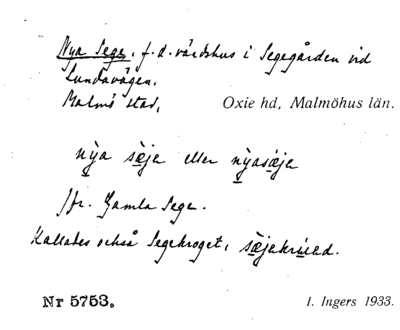 Nya Sege, f.d. värdshus i Segegården vid
Lundavägen.
Malmö stad, Oxie hd, Malmöhus län.
nỳa sæ̀ja eller nỳasæja
Jfr. Gamla Sege.
Kallades också Segekroget,
Nr 5753. I. Ingers 1933.